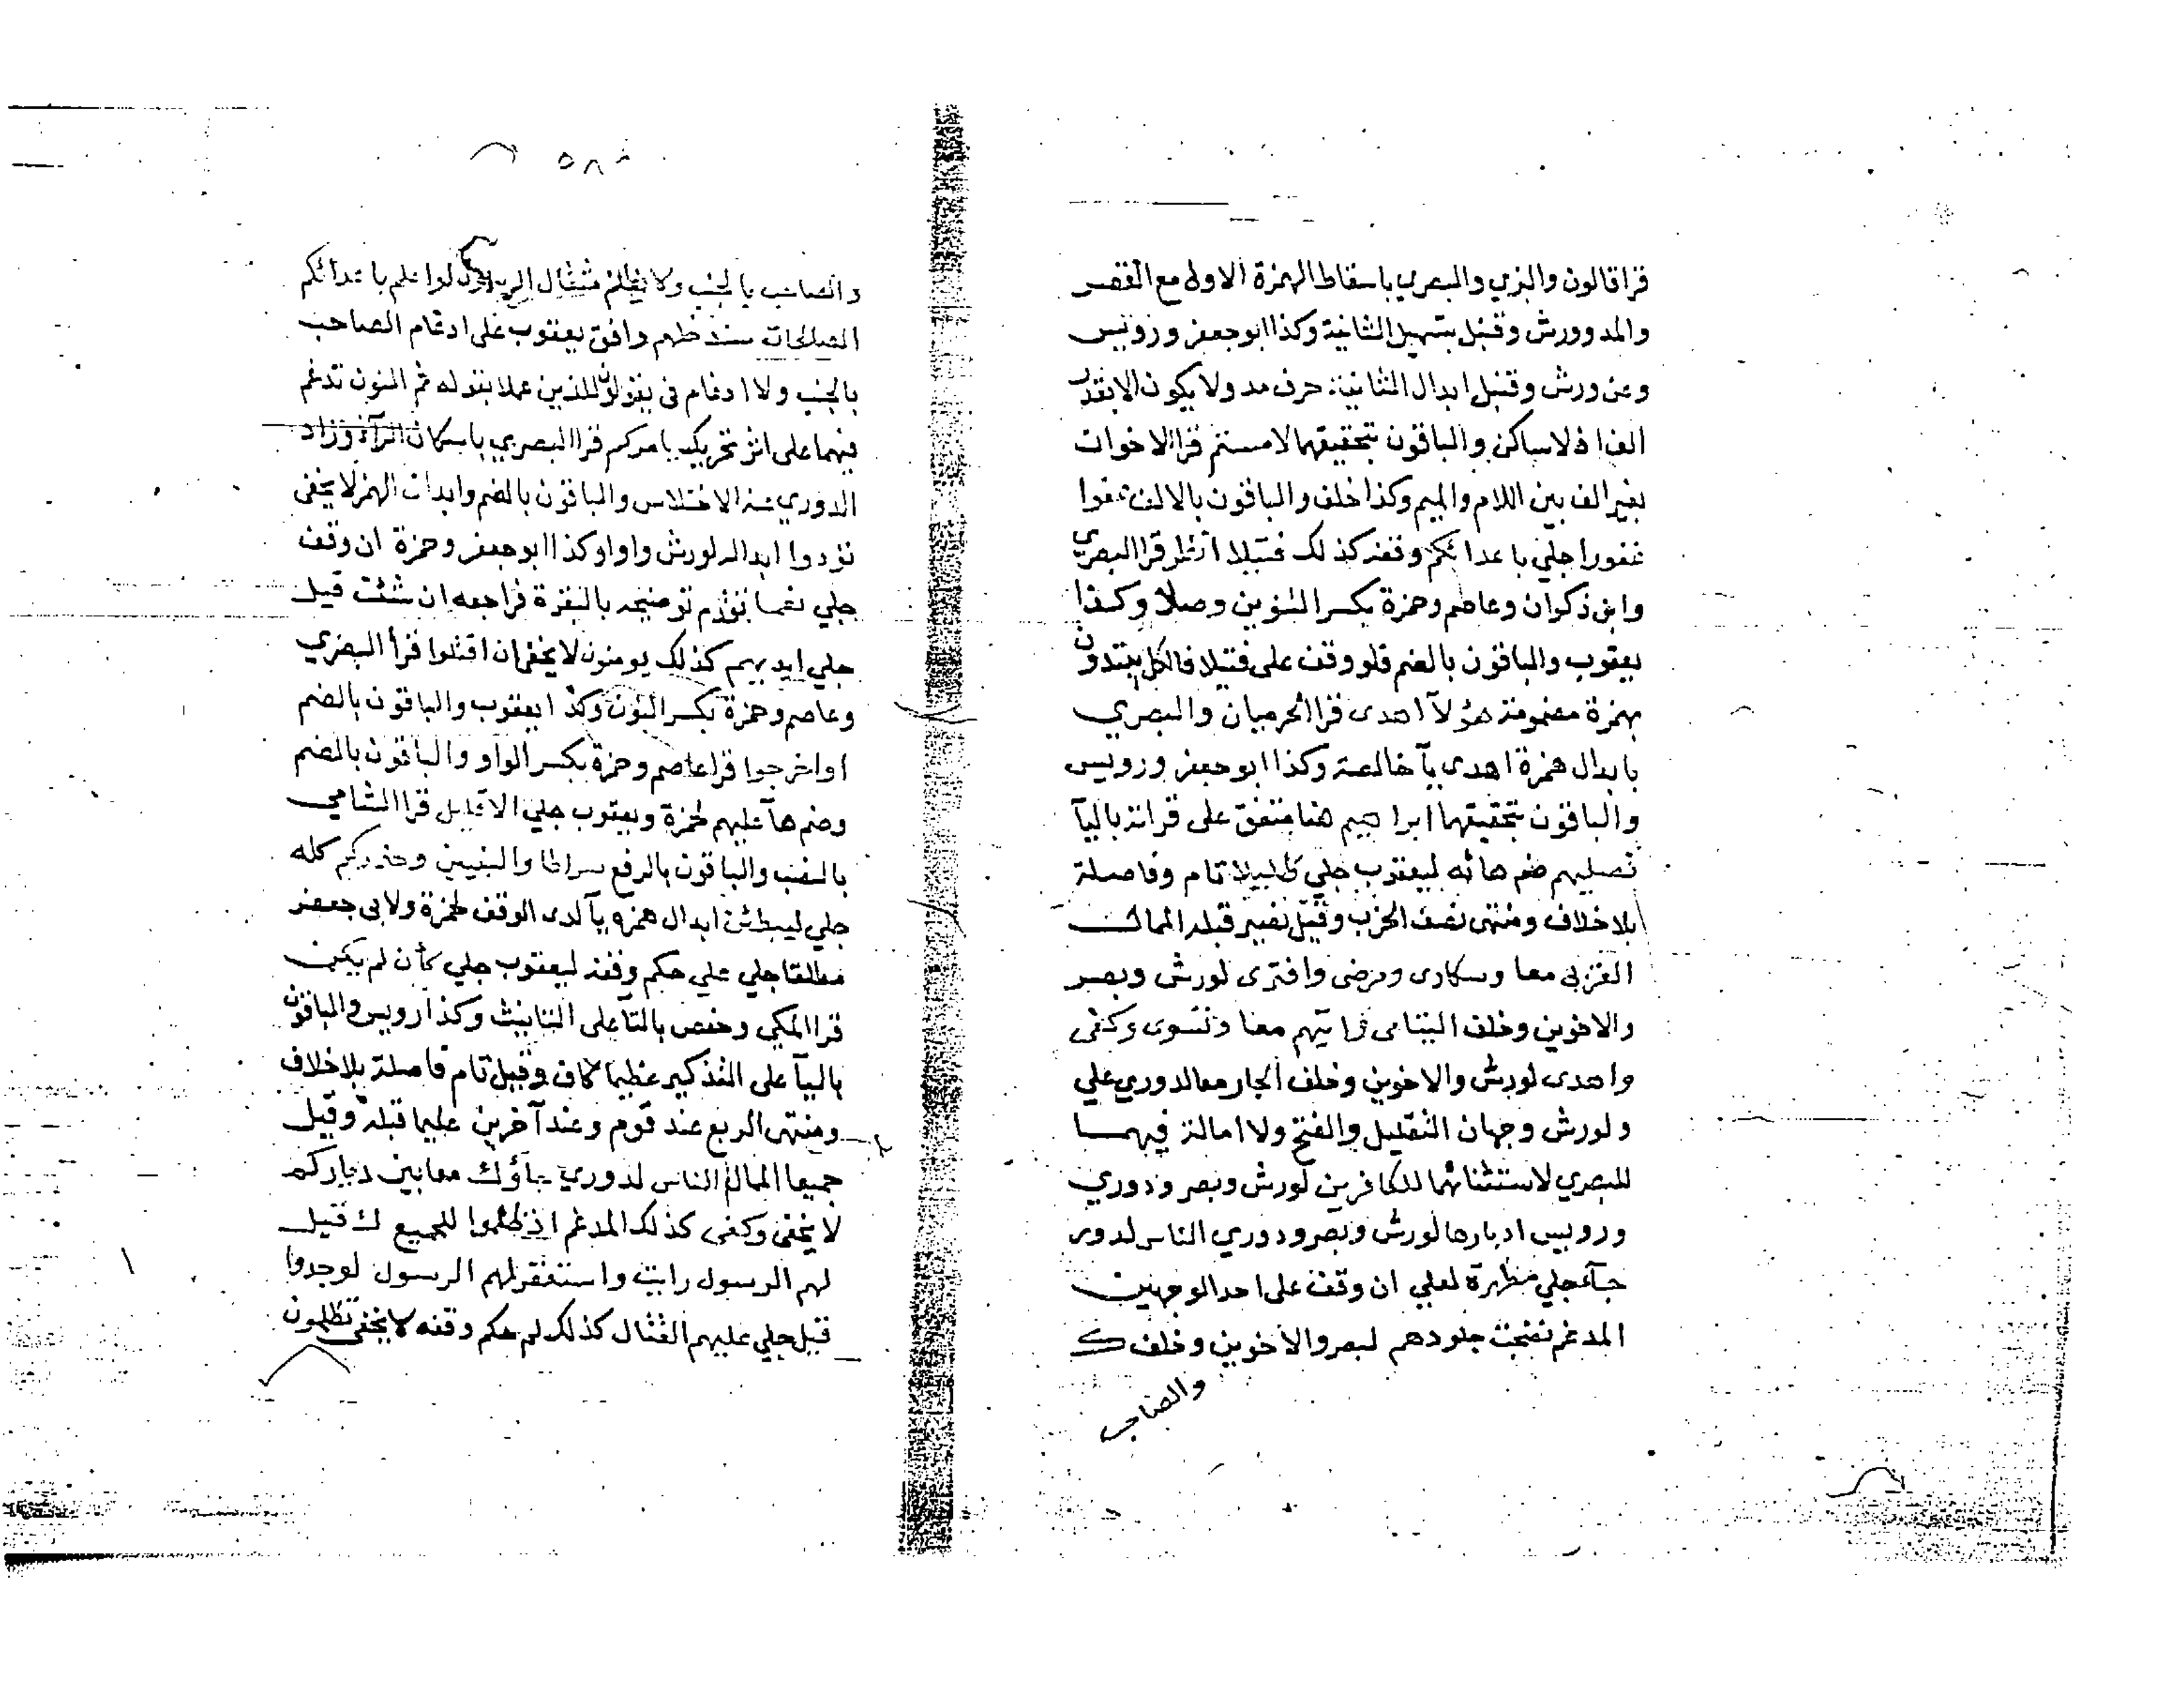 قرا قالون والبزي والبصري باسقاط الهمزة الاولى مع القصر
والمد وورش وقنبل بتسهيل الثانية وكذا ابو جعفر ورويس
وعن ورش وقنبل ابدال الثانية حرف مد ولا يكون الا بقدر
الف اذ لا ساكن والباقون بتحقيقهما لامستم قرا الاخوان
بغير الف بين اللام والميم وكذا خلف والباقون بالالف عفوا
غفورا جلي باعدائكم وقفه كذلك فتيلا انظر قرا البصري
وابن ذكوان وعاصم وحمزة بكسر التنوين وصلا وكذا
يعقوب والباقون بالضم فلو وقف على فتيلا فالكل يبتدون
بهمزة مضمومة هؤلآ اهدى قرا الحرميان والبصري
بابدال همزة اهدى يآ خالصة وكذا ابو جعفر ورويس
والباقون بتحقيقهما ابراهيم هنا متفق على قراته باليآ
نصليهم ضم هائه ليعقوب جلي ظليلا تام وفاصلة
بلا خلاف ومنتهى نصف الحزب وقيل نصير قبله الممالــ
القربى معا وسكارى ومرضى وافترى لورش وبصر
والاخوين وخلف اليتامى معا وتسوى وكفى
واهدى لورش والاخوين وخلف الجار معا لدوري علي
ولورش وجهان التقليل والفتح ولا امالة فيهمــا
للبصري لاستثنائهما للكافرين لورش وبصر ودوري
ورويس ادبارها لورش وبصر ودوري الناس لدور
جآء جلي مطهرة لعلي ان وقف على احد الوجهين
المدغم نضجت جلودهم لبصر والاخوين وخلف ك
والصاحب
٥٨
والصاحب بالجنب ولا يظلم مثقال الرسول لو اعلم باعدائكم
الصلحات سندخلهم وافق يعقوب على ادغام الصاحب
بالجنب ولا ادغام في يقولون للذين عملا بقوله ثم النون تدغم
فيهما على اثر تحريك يامركم قرا البصري باسكان الرآء وزاد
الدوري عنه الاختلاس والباقون بالضم وابدال الهمز لا يخفى
تؤدوا ابداله لورش واوا وكذا ابو جعفر وحمزة ان وقف
جلي نعما تقدم توضيحه بالبقرة فراجعه ان شئت قيل
جلي ايديهم كذلك يومنون لا يخفى ان اقتلوا قرأ البصري
وعاصم وحمزة بكسر النون وكذا يعقوب والباقون بالضم
او اخرجوا قرا عاصم وحمزة بكسر الواو والباقون بالضم
وضم هآ عليهم لحمزة ويعقوب جلي الا قليل قرا الشامي
بالنصب والباقون بالرفع صراطا والنبيين وحذركم كله
جلي ليبطئن ابدال همزه يآ لدى الوقف لحمزة ولابي جعفر
مطلقا جلي علي حكم وقفه ليعقوب جلي كأن لم يكن
قرا المكي وحفص بالتآ على التانيث وكذا رويس والباقون
باليآ على التذكير عظيما كاف وقيل تام فاصلة بلا خلاف
ومنتهى الربع عند قوم وعند آخرين عليما قبله وقيل
جميعا الممال الناس لدوري جآؤك معا بين دياركم
لا يخفى وكفى كذلك المدغم اذ ظلموا للجميع ك قيل
لهم الرسول رايت واستغفر لهم الرسول لوجدوا
قبل جلي عليهم القتال كذلك لم حكم وقفه لا يخفى تظلمون